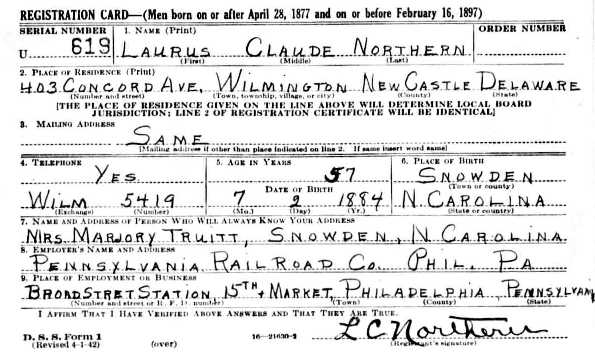 REGISTRATION CARD—(Men born on or after April 28, 1877 and on or before February 16, 1897)
SERIAL NUMBER 1. NAME (Print) ORDER NUMBER
U 619 LAURUS CLAUDE NORTHERN
(First) (Middle) (Last)
2. PLACE OF RESIDENCE (Print)
403 CONCORD AVE, WILMINGTON NEW CASTLE DELAWARE
(Number and street) (Town, township, village, or city) (County) (State)
[THE PLACE OF RESIDENCE GIVEN ON THE LINE ABOVE WILL DETERMINE LOCAL BOARD
JURISDICTION; LINE 2 OF REGISTRATION CERTIFICATE WILL BE IDENTICAL]
3. MAILING ADDRESS
SAME
[Mailing address if other than place indicated on line 2. If same insert word same]
4. TELEPHONE 5. AGE IN YEARS 6. PLACE OF BIRTH
YES 57 SNOWDEN
(Town or county)
DATE OF BIRTH
WILM 5419 7 2 1884 N. CAROLINA
(Exchange) (Number) (Mo.) (Day) (Yr.) (State or country)
7. NAME AND ADDRESS OF PERSON WHO WILL ALWAYS KNOW YOUR ADDRESS
MRS. MARJORY TRUITT, SNOWDEN, N. CAROLINA
8. EMPLOYER'S NAME AND ADDRESS
PENNSYLVANIA RAILROAD CO. PHIL. PA
9. PLACE OF EMPLOYMENT OR BUSINESS
BROAD STRET STATION 15TH & MARKET, PHILADELPHIA, PENNSYLVAN
(Number and street or R. F. D. number) (Town) (County) (State)
I AFFIRM THAT I HAVE VERIFIED ABOVE ANSWERS AND THAT THEY ARE TRUE.
D. S. S. Form 1 L C Northern
(Revised 4-1-42) (over) 16—21630-2 (Registrant's signature)